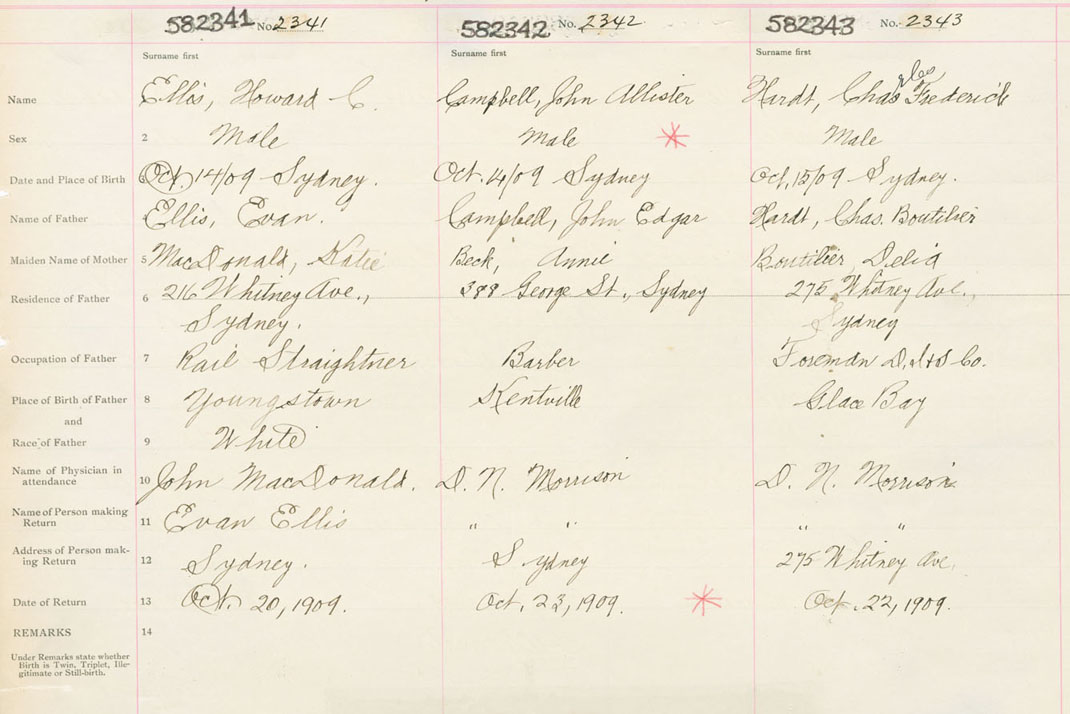 582341 No. 2341 582342 No. 2342 582343 No. 2343
Surname first Surname first Surname first
rles
Name Ellis, Howard C. Campbell, John Allister Hardt, Chas Frederick
Sex 2 Male Male Male
Date and Place of Birth 3 Oct. 14/09 Sydney. Oct. 14/09 Sydney Oct, 15/09 Sydney.
Name of Father 4 Ellis, Evan. Campbell, John Edgar Hardt, Chas. Boutilier
Maiden Name of Mother 5 MacDonald, Katie Beck, Annie Boutilier Delia
Residence of Father 6 216 Whitney Ave., 388 George St., Sydney 275 Whitney Ave.,
Sydney. Sydney
Occupation of Father 7 Rail Straightner Barber Foreman D. I & S Co.
Place of Birth of Father 8 Youngstown Kentville Glace Bay
and
Race of Father 9 White
Name of Physician in
attendance 10 John MacDonald. D. N. Morrison D. N. Morrison
Name of Person making
Return 11 Evan Ellis " " " "
Address of Person mak-
ing Return 12 Sydney. Sydney 275 Whitney Ave.
Date of Return 13 Oct. 20, 1909. Oct. 23, 1909. Oct. 22, 1909.
REMARKS 14
Under Remarks state whether
Birth is Twin, Triplet, Ille-
gitimate or Still-birth.